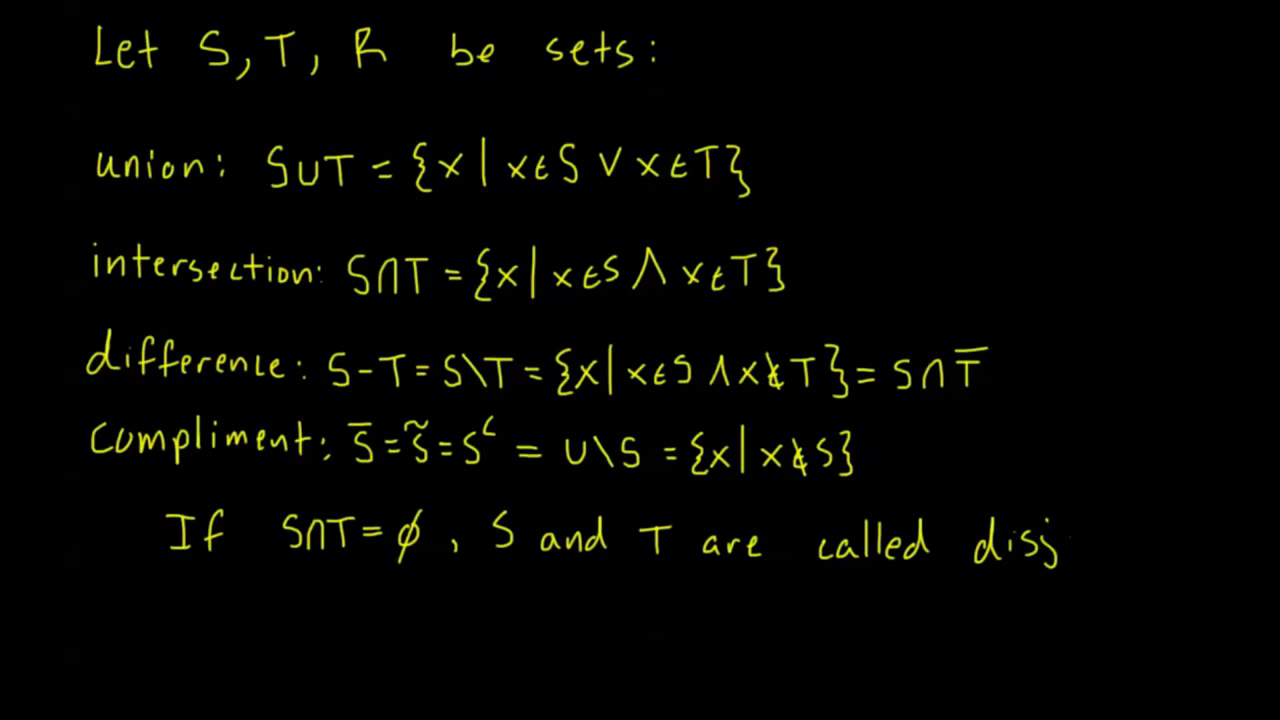 Let S, T, R be sets:
union: S∪T = {x | x∈S ∨ x∈T}
intersection: S∩T = {x | x∈S ∧ x∈T}
difference: S-T = S\T = {x | x∈S ∧ x∉T} = S∩T̅
Compliment: S̅ = S̃ = Sᶜ = U\S = {x | x∉S}
If S∩T = ∅, S and T are called disj